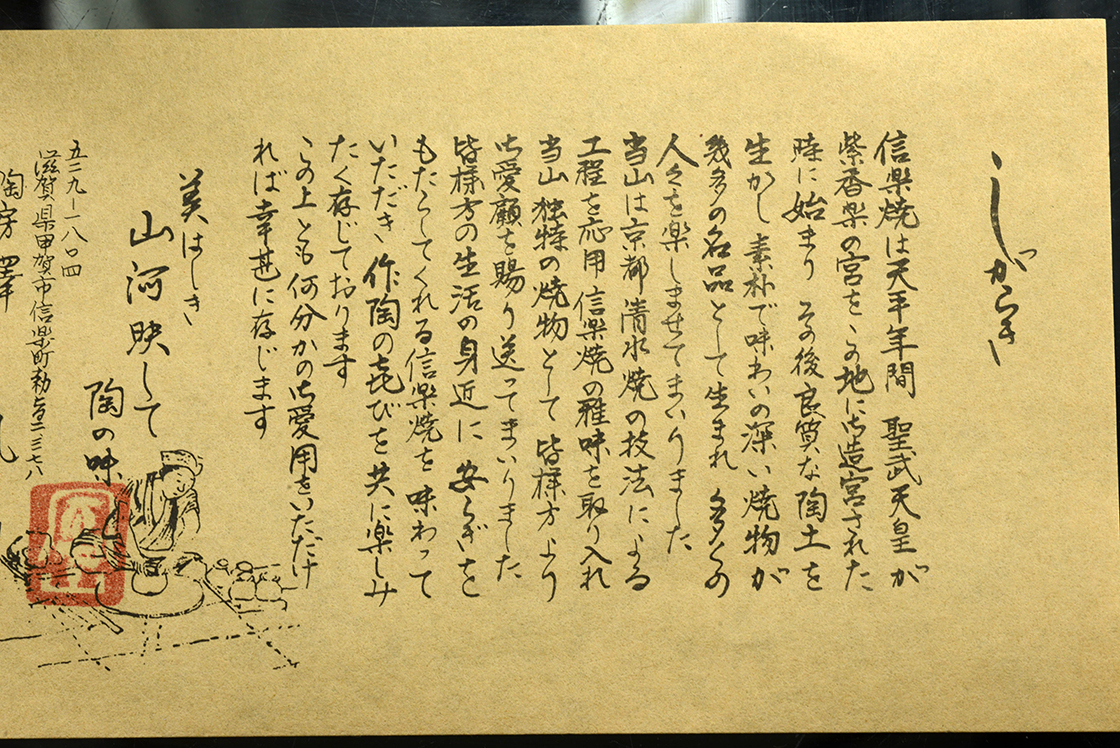 しがらき
信楽焼は天平年間 聖武天皇が
紫香楽の宮をこの地に御造宮された
時に始まり その後良質な陶土を
生かし 素朴で味わいの深い焼物が
幾多の名品として生まれ 多くの
人々を楽しませてまいりました
当山は京都清水焼の技法による
工程を応用 信楽焼の雅味を取り入れ
当山独特の焼物として 皆様方より
御愛顧を賜り送ってまいりました
皆様方の生活の身近に 安らぎを
もたらしてくれる信楽焼を 味わって
いただき 作陶の㐂びを共に楽しみ
たく存じております
この上とも何分かの御愛用をいただけ
れば幸甚に存じます
美はしき
山河映して
陶の味
五二九-一八〇四
滋賀県甲賀市信楽町勅旨二三七八
陶房